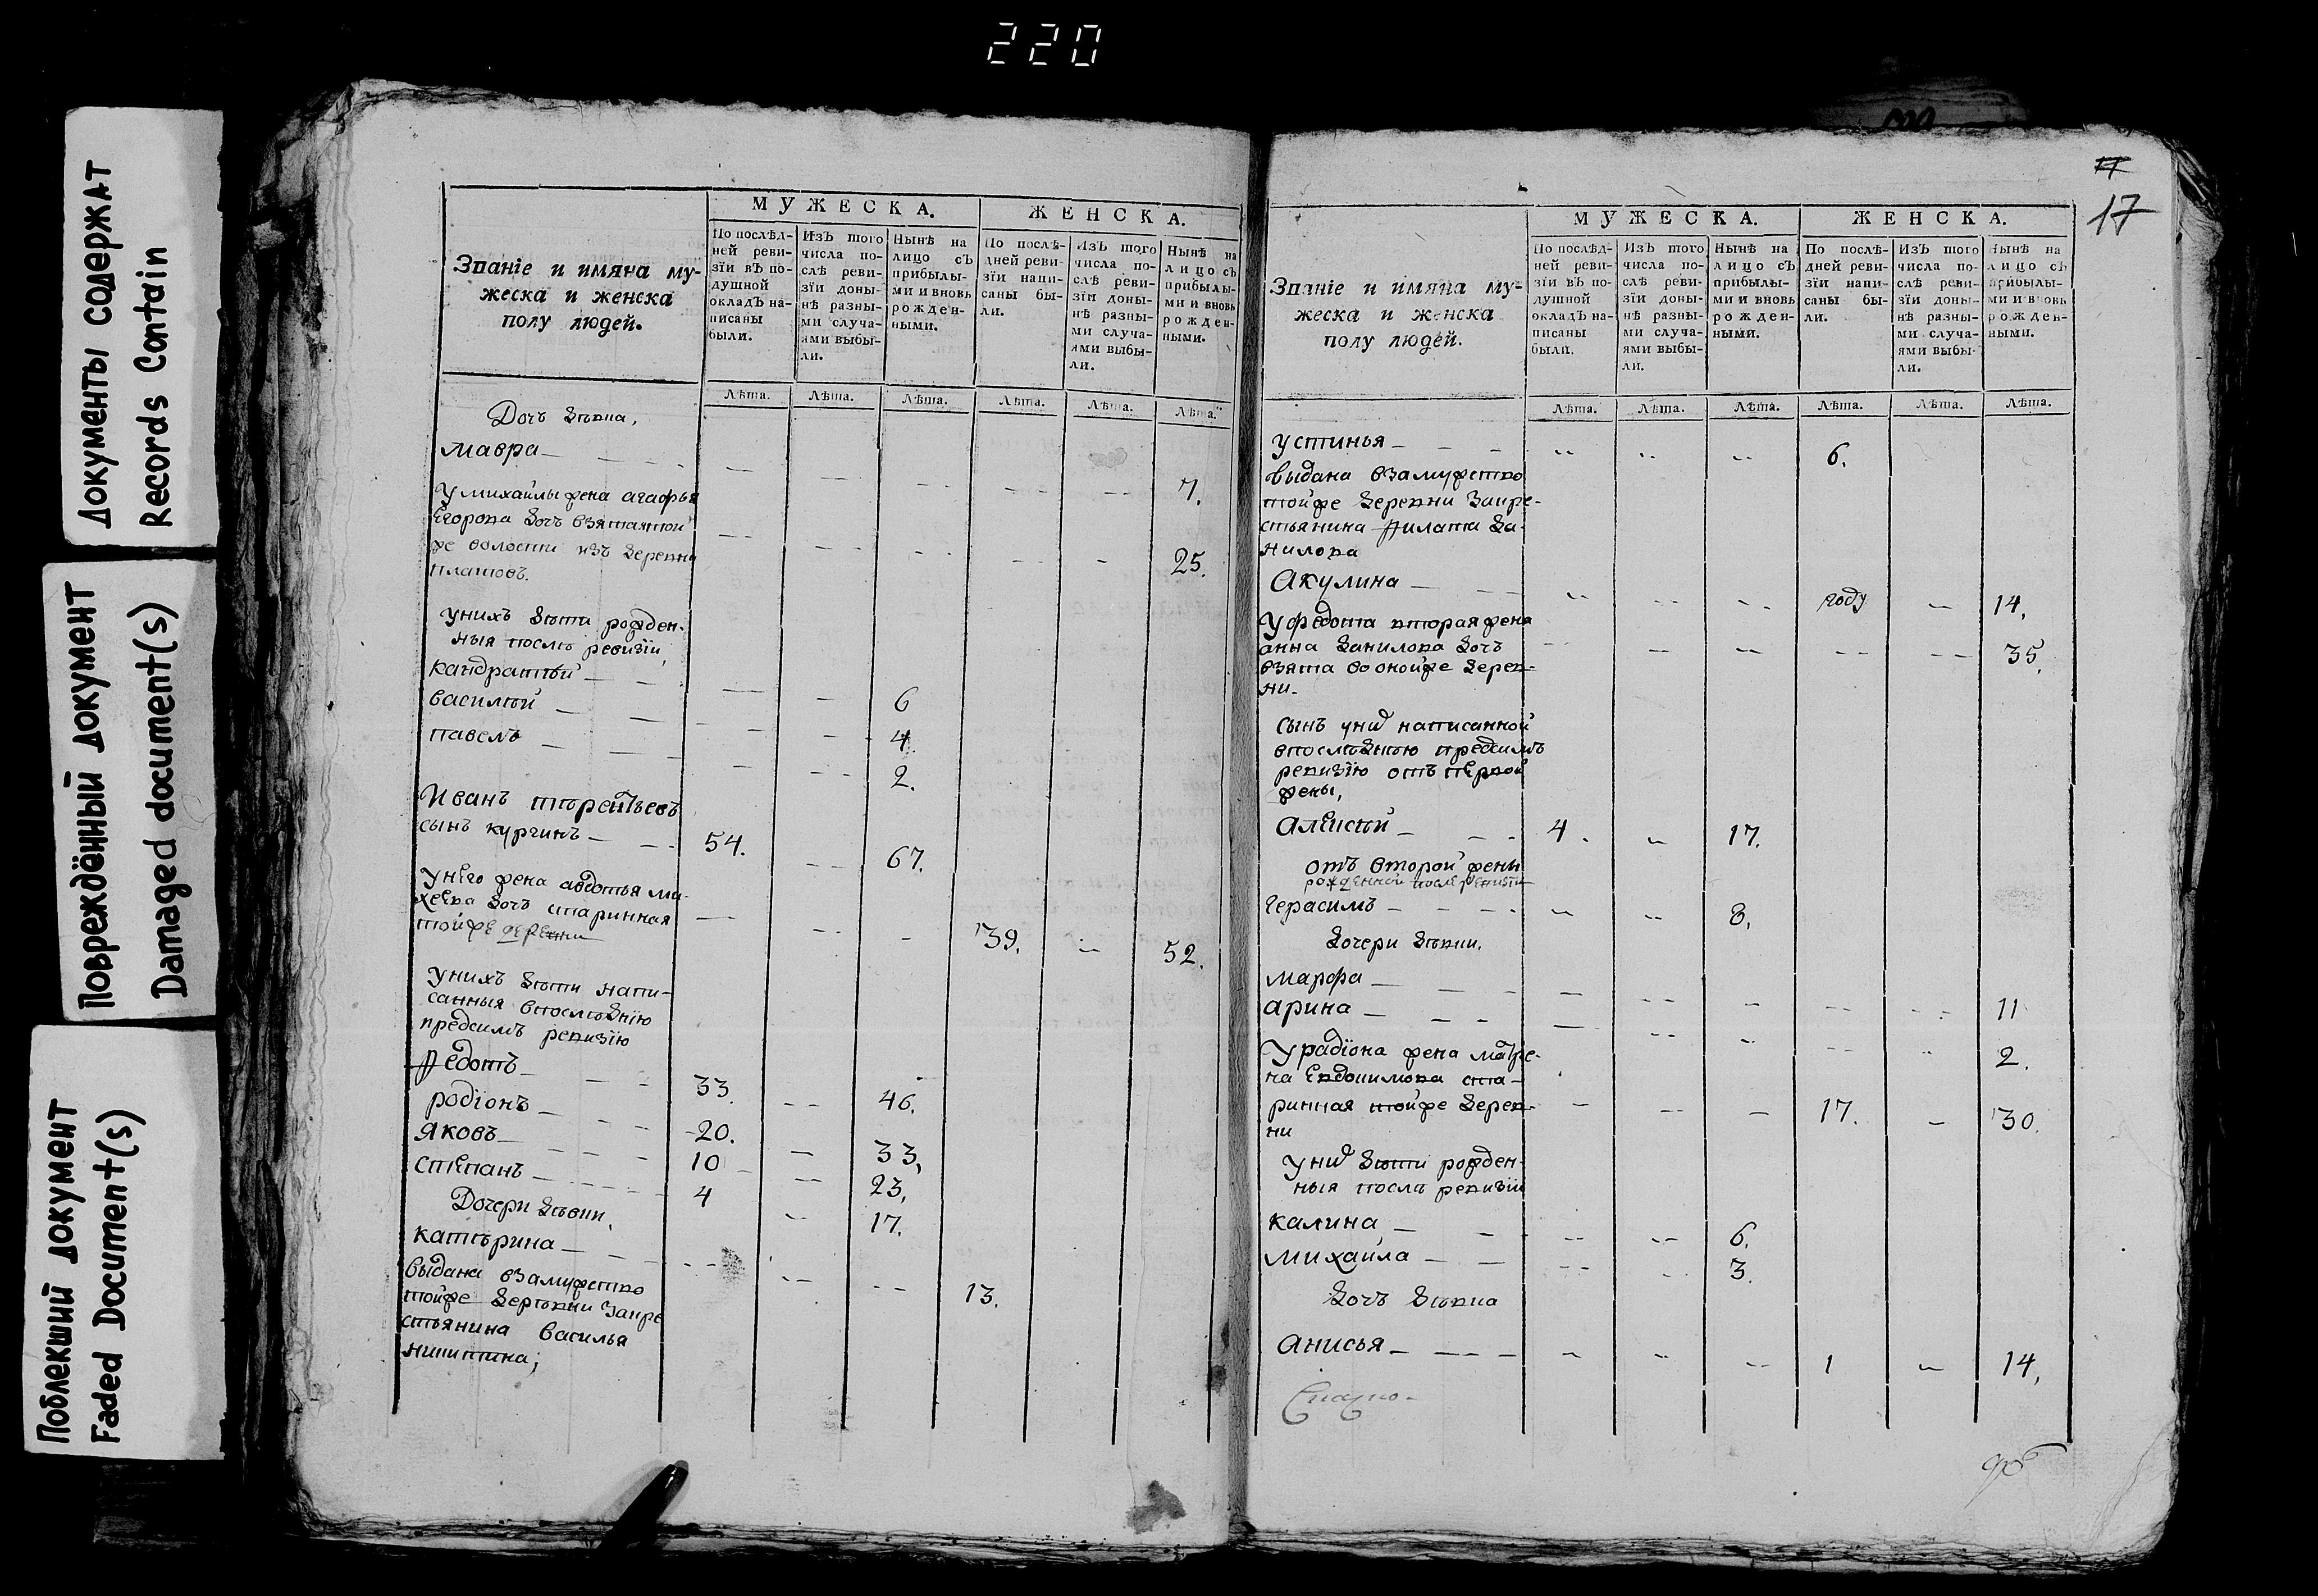 220
Документы содержат
Records Contain
Повреждённый документ
Damaged document(s)
Поблекший документ
Faded Document(s)
17
МУЖЕСКА. ЖЕНСКА.
Званіе и имяна му-
жеска и женска
полу людей.
По послѣд-
ней реви-
зіи въ по-
душной
окладъ на-
писаны
были.
Изъ того
числа по-
слѣ реви-
зіи доны-
нѣ разны-
ми случа-
ями выбы-
ли.
Нынѣ на
лицо съ
прибылы-
ми и вновь
рожден-
ными.
По послѣ-
дней реви-
зіи напи-
саны бы-
ли.
Изъ того
числа по-
слѣ реви-
зіи доны-
нѣ разны-
ми случа-
ями выбы-
ли.
Нынѣ на
лицо съ
прибылы-
ми и вновь
рожден-
ными.
Лѣта. Лѣта. Лѣта. Лѣта. Лѣта. Лѣта.
Дочь девка,
мавра 7.
умихайлы жена агафья
Егорова дочь взятаятой
же волости изъ деревни
25.
унихъ дети рожден-
ныя после ревизіи
кандратей 6
василей 4.
павелъ 2.
Иванъ терентьевъ
сынъ кургинъ 54. 67.
унего жена авдотья ми-
хеева дочь старинная
тойже деревни 39. 52.
унихъ дети напи-
санныя впоследнюю
предсимъ ревизію
Федотъ 33. 46.
родіонъ 20. 33,
яковъ 10 23,
степанъ 4 17.
Дочери девки,
катерина 13.
выдана взамужство
тойже деревни закре
стьянина василья
никитина;
МУЖЕСКА. ЖЕНСКА.
Званіе и имяна му-
жеска и женска
полу людей.
По послѣд-
ней реви-
зіи въ по-
душной
окладъ на-
писаны
были.
Изъ того
числа по-
слѣ реви-
зіи доны-
нѣ разны-
ми случа-
ями выбы-
ли.
Нынѣ на
лицо съ
прибылы-
ми и вновь
рожден-
ными.
По послѣ-
дней реви-
зіи напи-
саны бы-
ли.
Изъ того
числа по-
слѣ реви-
зіи доны-
нѣ разны-
ми случа-
ями выбы-
ли.
Нынѣ на
лицо съ
прибылы-
ми и вновь
рожден-
ными.
Лѣта. Лѣта. Лѣта. Лѣта. Лѣта. Лѣта.
устинья 6.
выдана взамужство
тойже деревни закре-
стьянина Филата да-
нилова
Акулина году 14,
уфедота вторая жена
анна данилова дочь 35,
взята воонойже дерев-
ни.
сынъ них написанной
впоследнюю предсимъ
ревизію отъ первой
жены,
алексей 4. 17.
отъ второй жены
рожденной после ревизіи
герасимъ 8,
дочери девки,
марфа 11
арина 2.
урадіона жена матре-
на Евдокимова ста-
ринная тойже дерев- 17. 30.
ни
уних дети рожден-
ныя после ревизіи
калина 6.
михайла 3.
дочь девка
анисья 1 14,